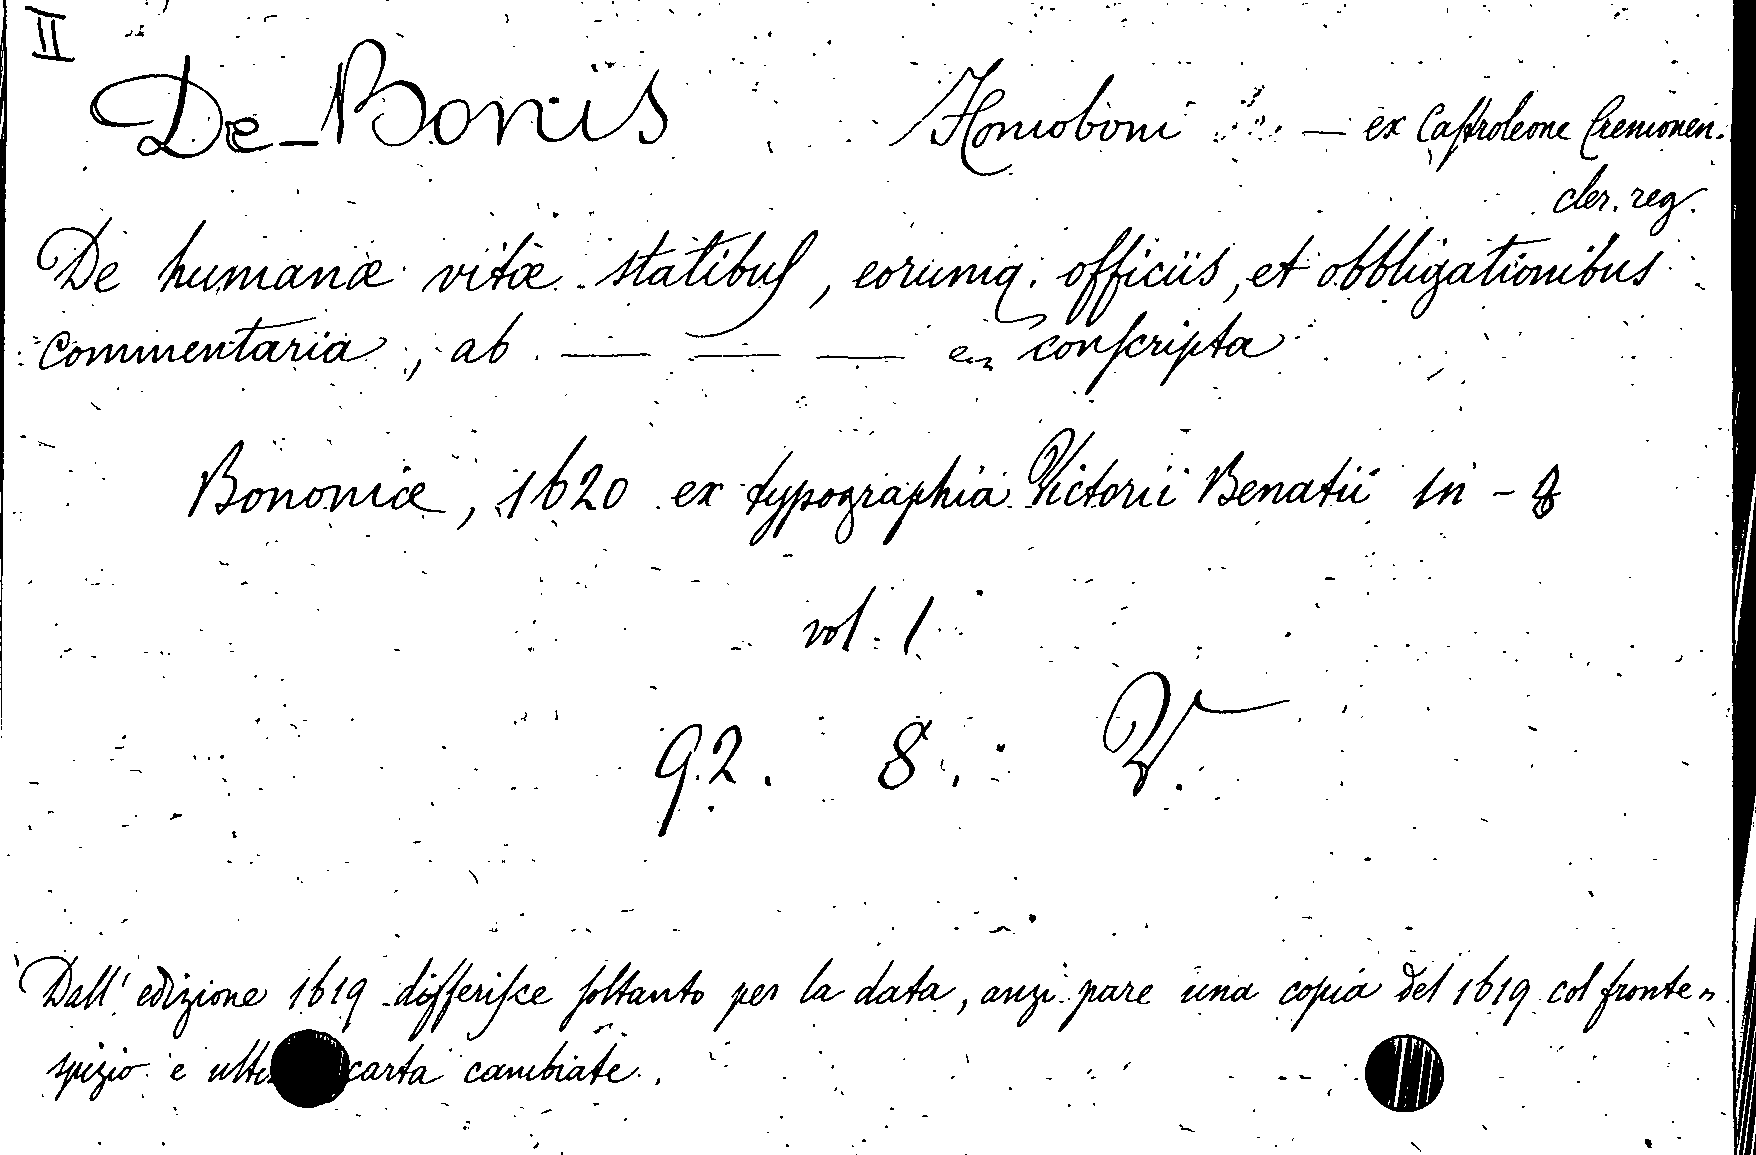 II
De-Bonis Homoboni — ex Castroleone Cremonen.
cler. reg.
De humanæ vitæ statibus, eorumq. officiis, et obbligationibus
commentaria, ab — — — conscripta
Bononiæ, 1620 ex typographia Victorii Benatii in - 8
vol. 1
92. 8. V.
Dall' edizione 1619 differisce soltanto per la data, anzi pare una copia del 1619 col fronte=
spizio e carta cambiate.